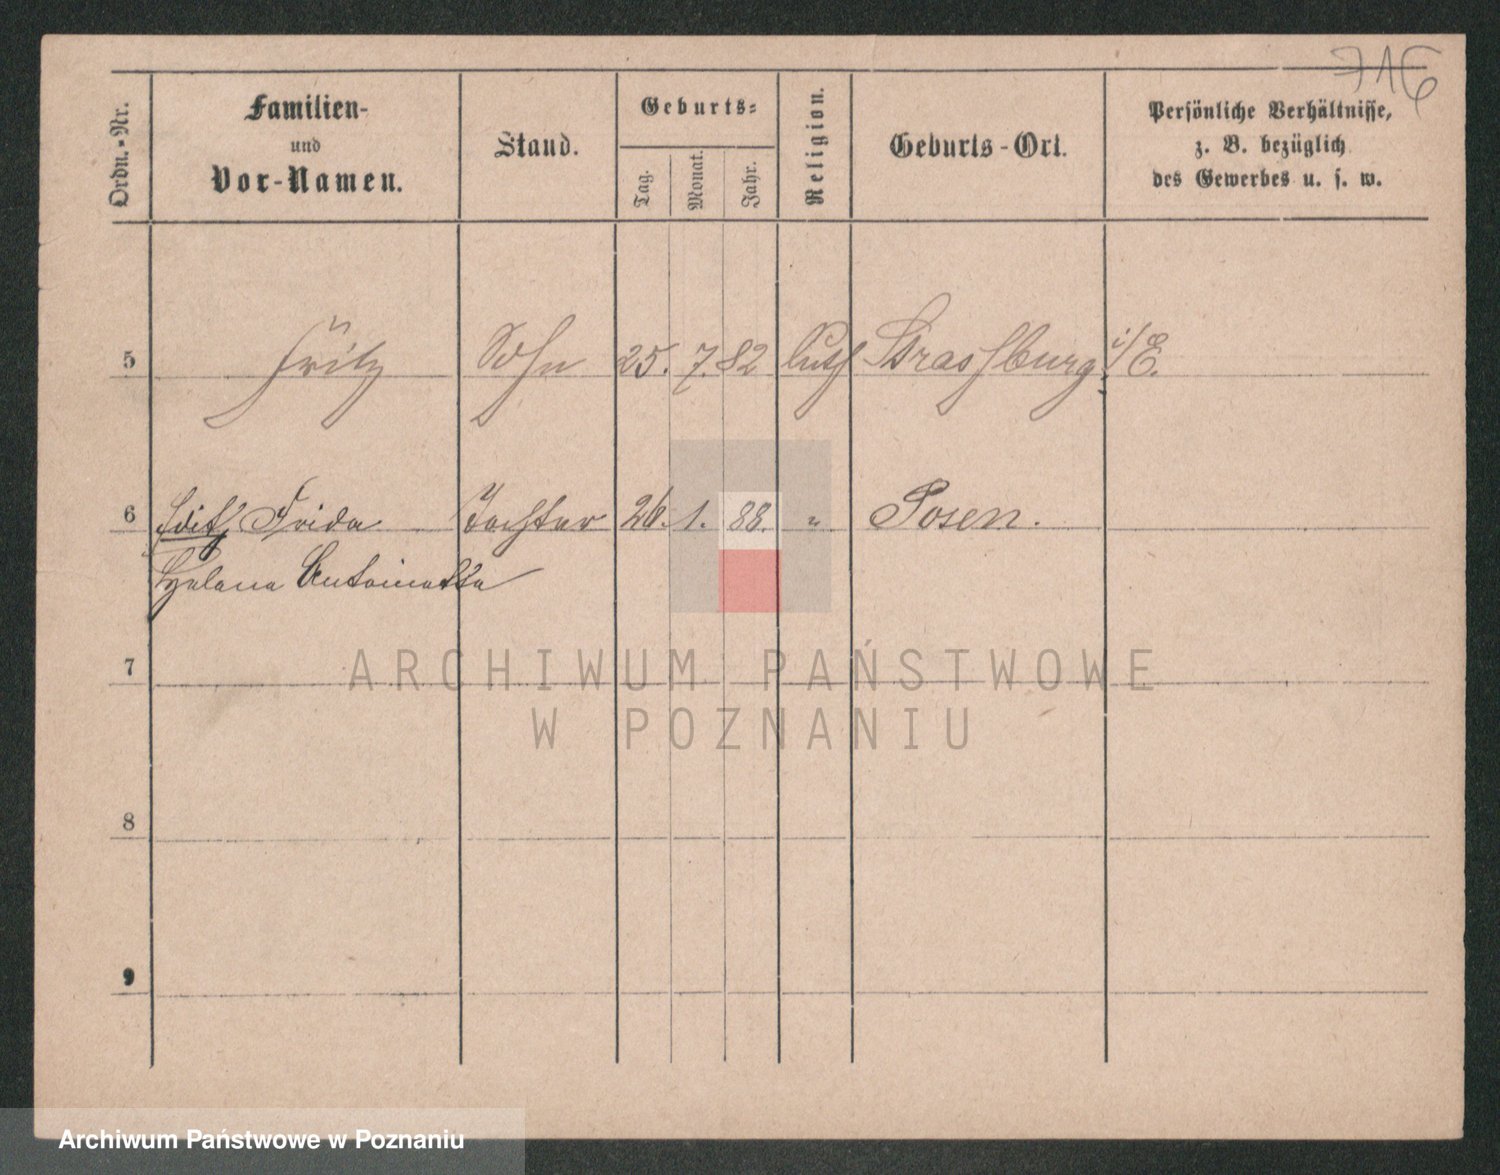 716
Ordn.-Nr.
Familien-
und
Vor-Namen.
Stand.
Geburts-
Tag.
Monat.
Jahr.
Religion.
Geburts-Ort.
Persönliche Verhältnisse,
z. B. bezüglich
des Gewerbes u. s. w.
5 Fritz Sohn 25. 7. 82 luth Strassburg i/E.
6 Edith Frida Tochter 26. 1. 88. " Posen.
Helene Antoinette
7
ARCHIWUM PAŃSTWOWE
W POZNANIU
8
9
Archiwum Państwowe w Poznaniu